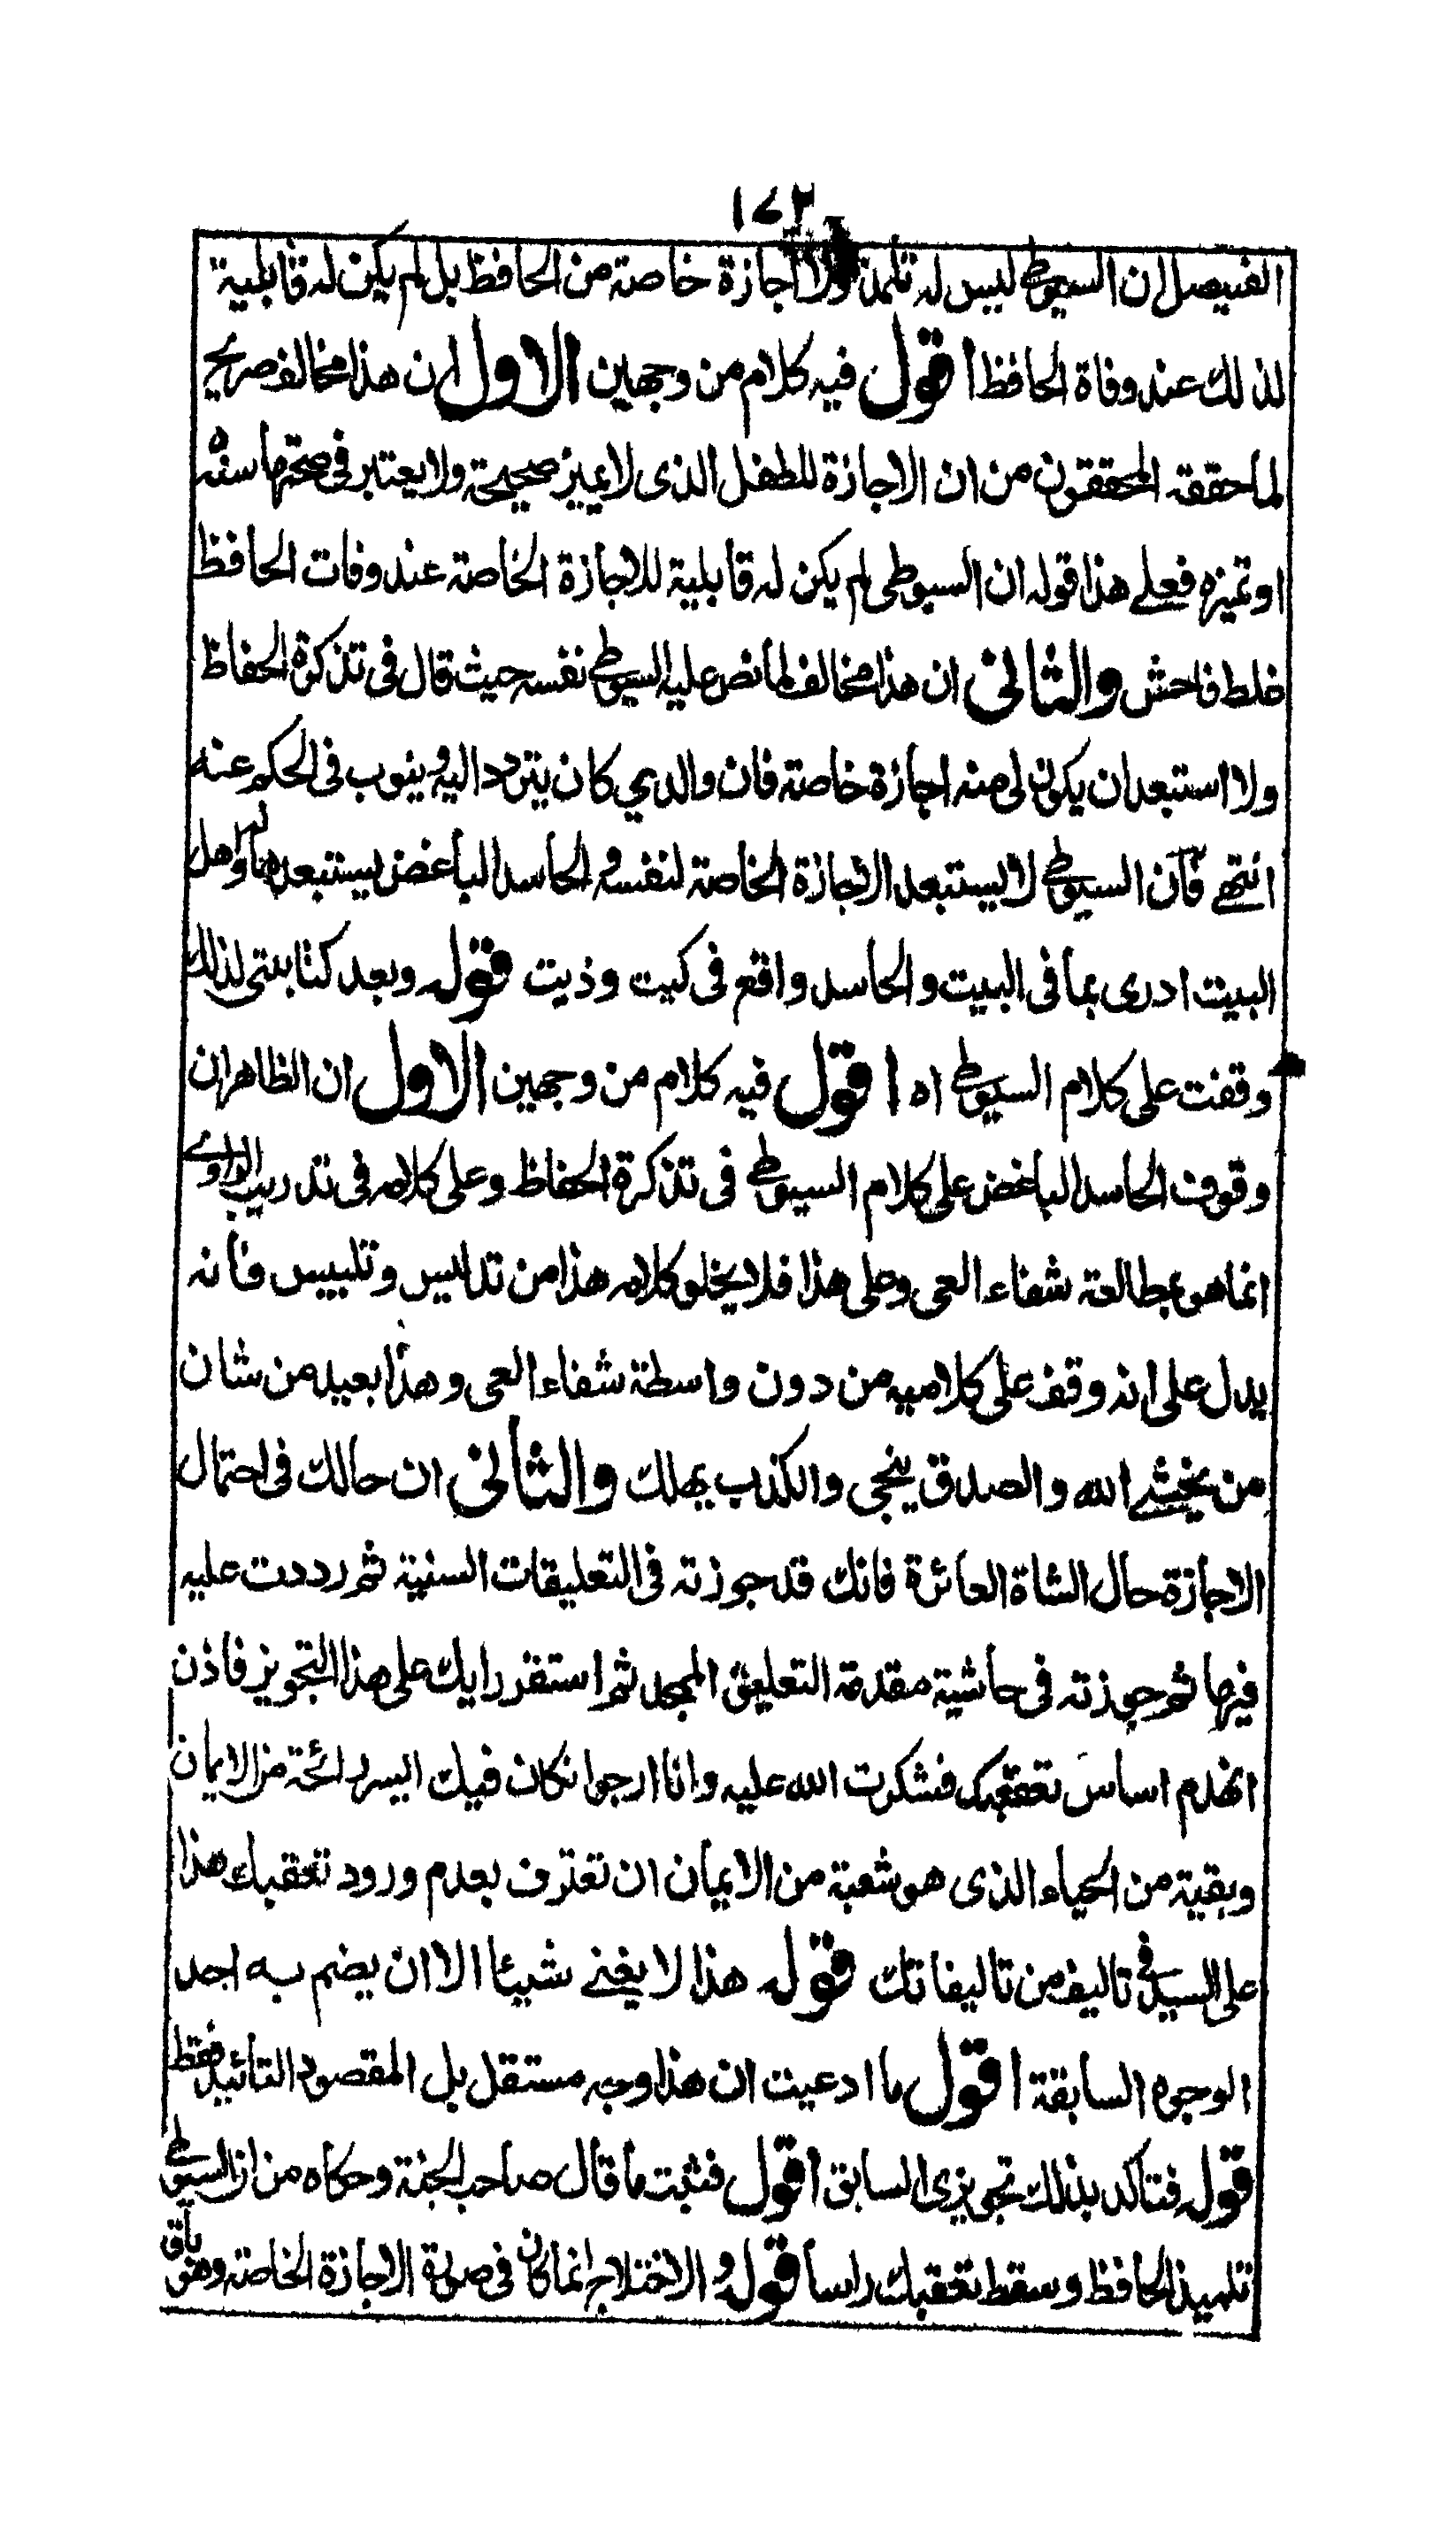 ١٧٢
الفيصل ان السيوطي ليس له تلمذ ولا اجازة خاصة من الحافظ بل لم يكن له قابلية
لذلك عند وفاة الحافظ اقول فيه كلام من وجهين الاول ان هذا مخالف صريح
لما حققه المحققون من ان الاجازة للطفل الذى لا يميز صحيحة ولا يعتبر فى صحتها سنه
او تميزه فعلے هذا قوله ان السيوطى لم يكن له قابلية للاجازة الخاصة عند وفات الحافظ
غلط فاحش والثانى ان هذا مخالف لما نص عليه السيوطے نفسه حيث قال فى تذكرة الحفاظ
ولا استبعد ان يكون لى منه اجازة خاصة فان والدي كان يتردد اليه وينوب فى الحكم عنه
انتهے فان السيوطے لا يستبعد الاجازة الخاصة لنفسه والحاسد الباغض يستبعدها واهل
البيت ادرى بما فى البيت والحاسد واقع فى كيت وذيت قوله وبعد كتابتى لذلك
وقفت على كلام السيوطے اه اقول فيه كلام من وجهين الاول ان الظاهر ان
وقوف الحاسد الباغض على كلام السيوطے فى تذكرة الحفاظ وعلى كلامه فى تدريب الراوے
انما هو بمطالعة شفاء العى وعلى هذا فلا يخلو كلامه هذا من تدليس وتلبيس فانه
يدل على انه وقف على كلاميه من دون واسطة شفاء العى وهذا بعيد من شان
من يخشے الله والصدق ينجى والكذب يهلك والثانى ان حالك فى احتمال
الاجازة حال الشاة العائرة فانك قد جوزته فى التعليقات السنية ثم رددت عليه
فيها ثم جوزته فى حاشية مقدمة التعليق الممجد ثم استقر رايك على هذا التجويز فاذن
انهدم اساس تعقبك فشكرت الله عليه وانا ارجو انكان فيك ايسر رائحة من الايمان
وبقية من الحياء الذى هو شعبة من الايمان ان تعترف بعدم ورود تعقبك هذا
على السيد فى تاليف من تاليفاتك قوله هذا لا يغنے شيئا الا ان يضم به احد
الوجوه السابقة اقول ما ادعيت ان هذا وجه مستقل بل المقصود التائيد فقط
قوله فتاكد بذلك تجويزى السابق اقول فثبت ما قال صاحب الجنة وحكاه من ان السيوطے
تلميذ الحافظ وسقط تعقبك راسا قوله والاختلاج انما كان فى صورة الاجازة الخاصة وهو باق